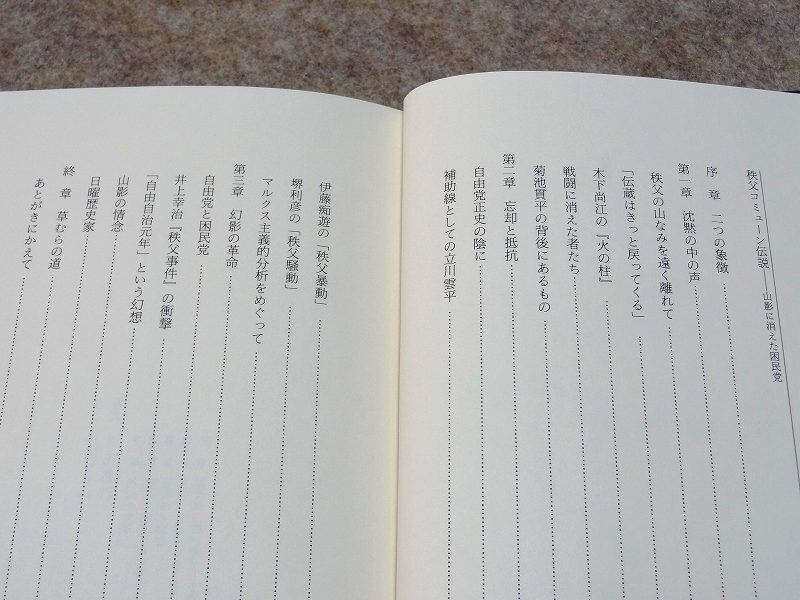 秩父コミューン伝説──山影に消えた困民党
序　章　二つの象徴
第一章　沈黙の中の声
秩父の山なみを遠く離れて
「伝蔵はきっと戻ってくる」
木下尚江の『火の柱』
戦闘に消えた者たち
菊池貫平の背後にあるもの
第二章　忘却と抵抗
自由党正史の陰に
補助線としての立川雲平
伊藤痴遊の「秩父暴動」
堺利彦の「秩父騒動」
マルクス主義的分析をめぐって
第三章　幻影の革命
自由党と困民党
井上幸治『秩父事件』の衝撃
「自由自治元年」という幻想
山影の情念
日曜歴史家
終　章　草むらの道
あとがきにかえて